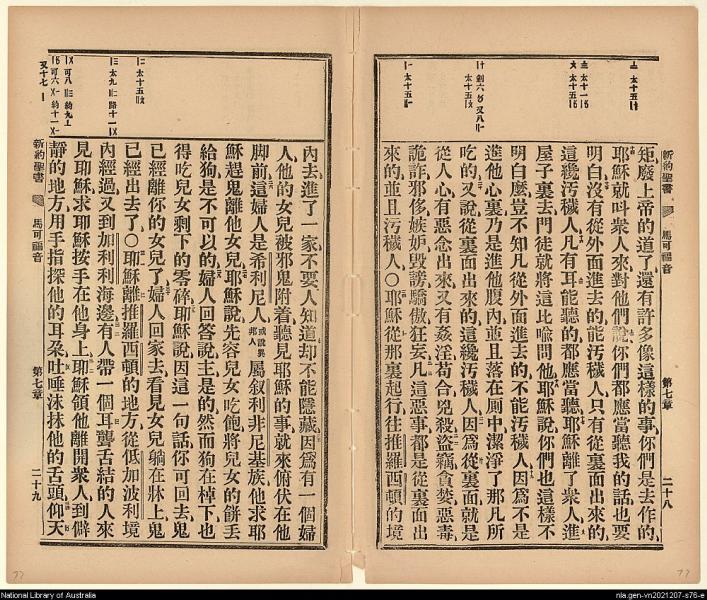 新約聖書
馬可福音
第七章
二十八
矩、廢上帝的道了、還有許多像這樣的事、你們是去作的、
耶穌就呌衆人來、對他們說、你們都應當聽我的話、也要
明白、沒有從外面進去的、能汚穢人、只有從裏面出來的、
這纔汚穢人、凡有耳能聽的、都應當聽、耶穌離了衆人、進
屋子裏去、門徒就將這比喻問他、耶穌說、你們也這樣不
明白麽、豈不知凡從外面進去的、不能汚穢人、因爲不是
進他心裏、乃是進他腹內、並且落在厠中、潔淨了那凡所
吃的、又說從裏面出來的、這纔汚穢人、因爲從裏面就是
從人心、有惡念出來、又有姦淫、苟合、兇殺、盜竊、貪婪、惡毒、
詭詐、邪侈、嫉妒、毀謗、驕傲、狂妄、凡這惡事、都是從裏面出
來的、並且汚穢人、○耶穌從那裏起行、往推羅西頓的境
內去、進了一家、不要人知道、却不能隱藏、因爲有一個婦
人、他的女兒被邪鬼附着、聽見耶穌的事、就來俯伏在他
脚前、這婦人是希利尼人、或說異邦人 屬叙利非尼基族、他求耶
穌趕鬼離他女兒、耶穌說、先容兒女吃飽、將兒女的餅丟
給狗是不可以的、婦人回答說、主是的、然而狗在棹下、也
得吃兒女剩下的零碎、耶穌說、因這一句話、你可回去、鬼
已經離你的女兒了、婦人回家去、看見女兒躺在牀上、鬼
已經出去了、○耶穌離推羅西頓的地方、從低加波利境
內經過、又到加利利海邊、有人帶一個耳聾舌結的人、來
見耶穌、求耶穌按手在他身上、耶穌領他離開衆人、到僻
靜的地方、用手指探他的耳朶、吐唾沫抹他的舌頭、仰天
新約聖書
馬可福音
第七章
二十九
National Library of Australia
nla.gen-vn2021207-s76-e